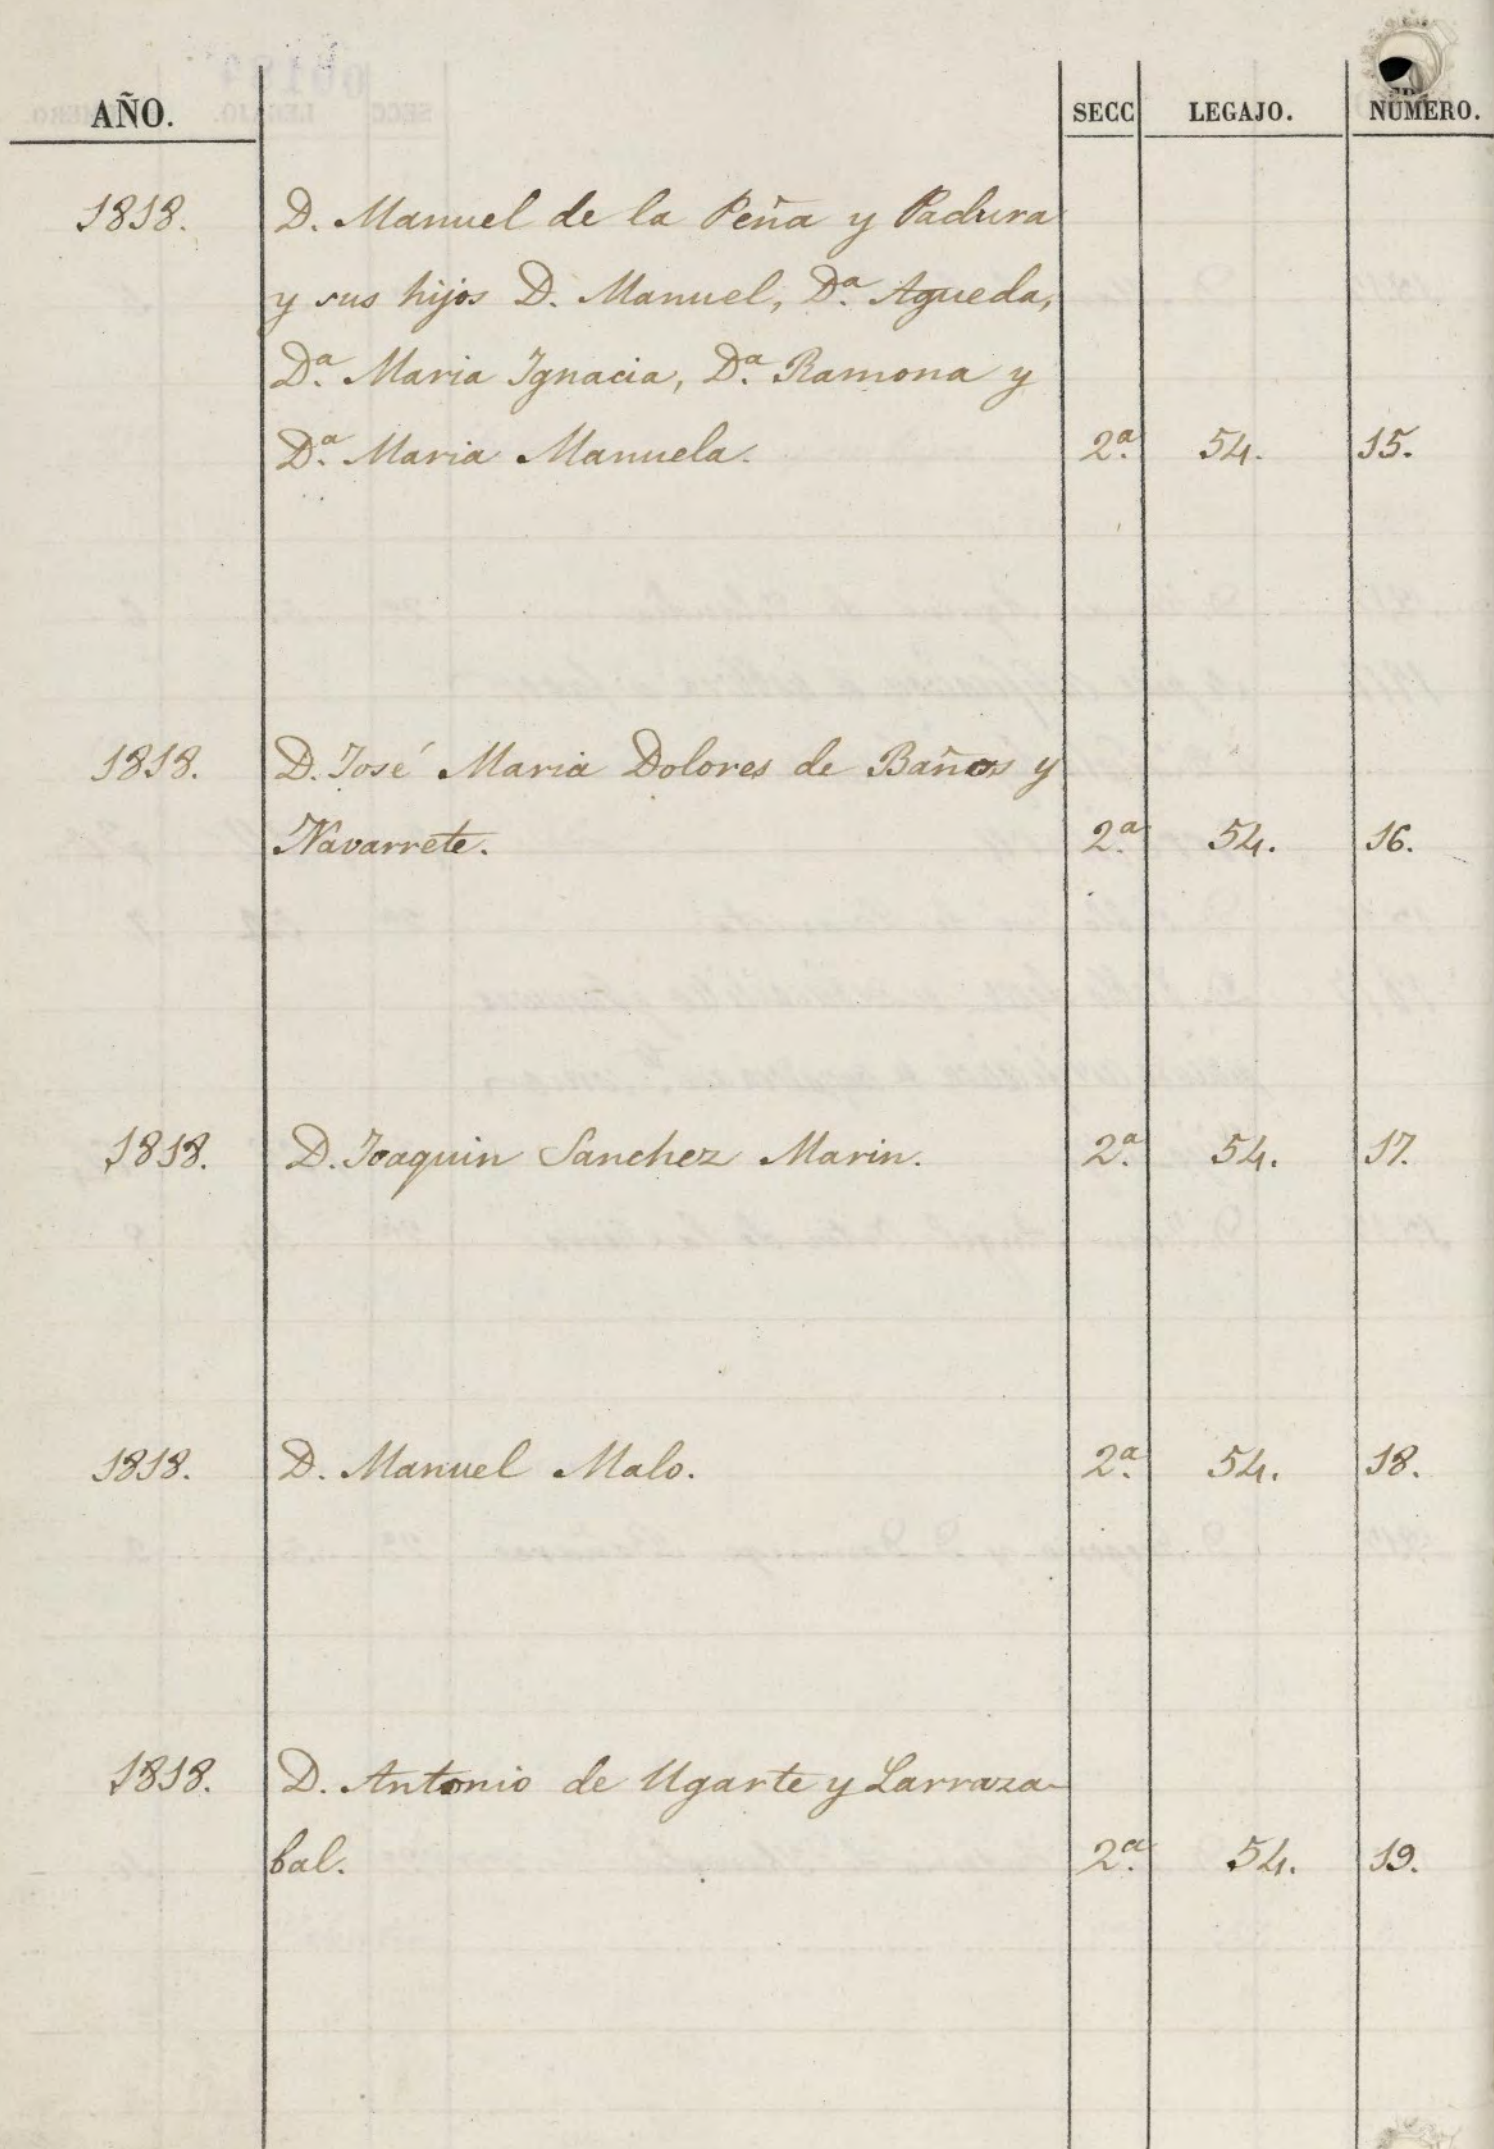 AÑO. SECC LEGAJO. NÚMERO.
1818. D. Manuel de la Peña y Padura
y sus hijos D. Manuel, D.ª Agueda,
D.ª Maria Ignacia, D.ª Ramona y
D.ª Maria Manuela. 2.ª 54. 15.
1818. D. José Maria Dolores de Baños y
Navarrete. 2.ª 54. 16.
1818. D. Joaquin Sanchez Marin. 2.ª 54. 17.
1818. D. Manuel Malo. 2.ª 54. 18.
1818. D. Antonio de Ugarte y Larraza-
bal. 2.ª 54. 19.